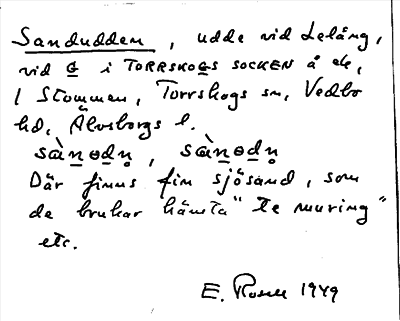 Sandudden, udde vid Lelång,
vid G i TORRSKOGS SOCKEN å ek,
/ Stommen, Torrskogs sn, Vedbo
hd, Älvsborgs l.
sànɵdn̥, sànɵdn̥
Där finns fin sjösand, som
de brukar hämta "te muring"
etc.
E. 1949